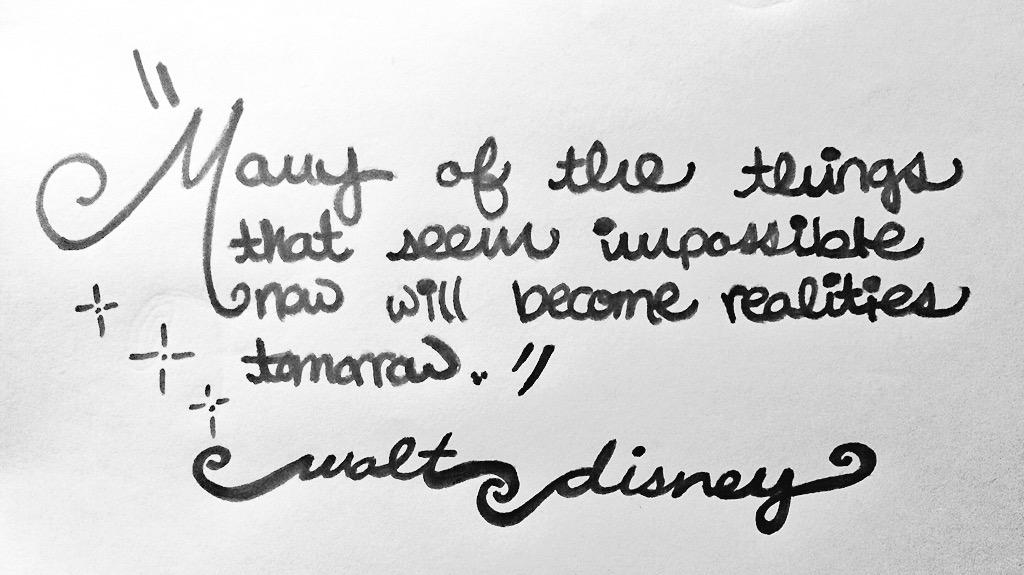 "Many of the things
that seem impossible
now will become realities
tomorrow."
walt disney